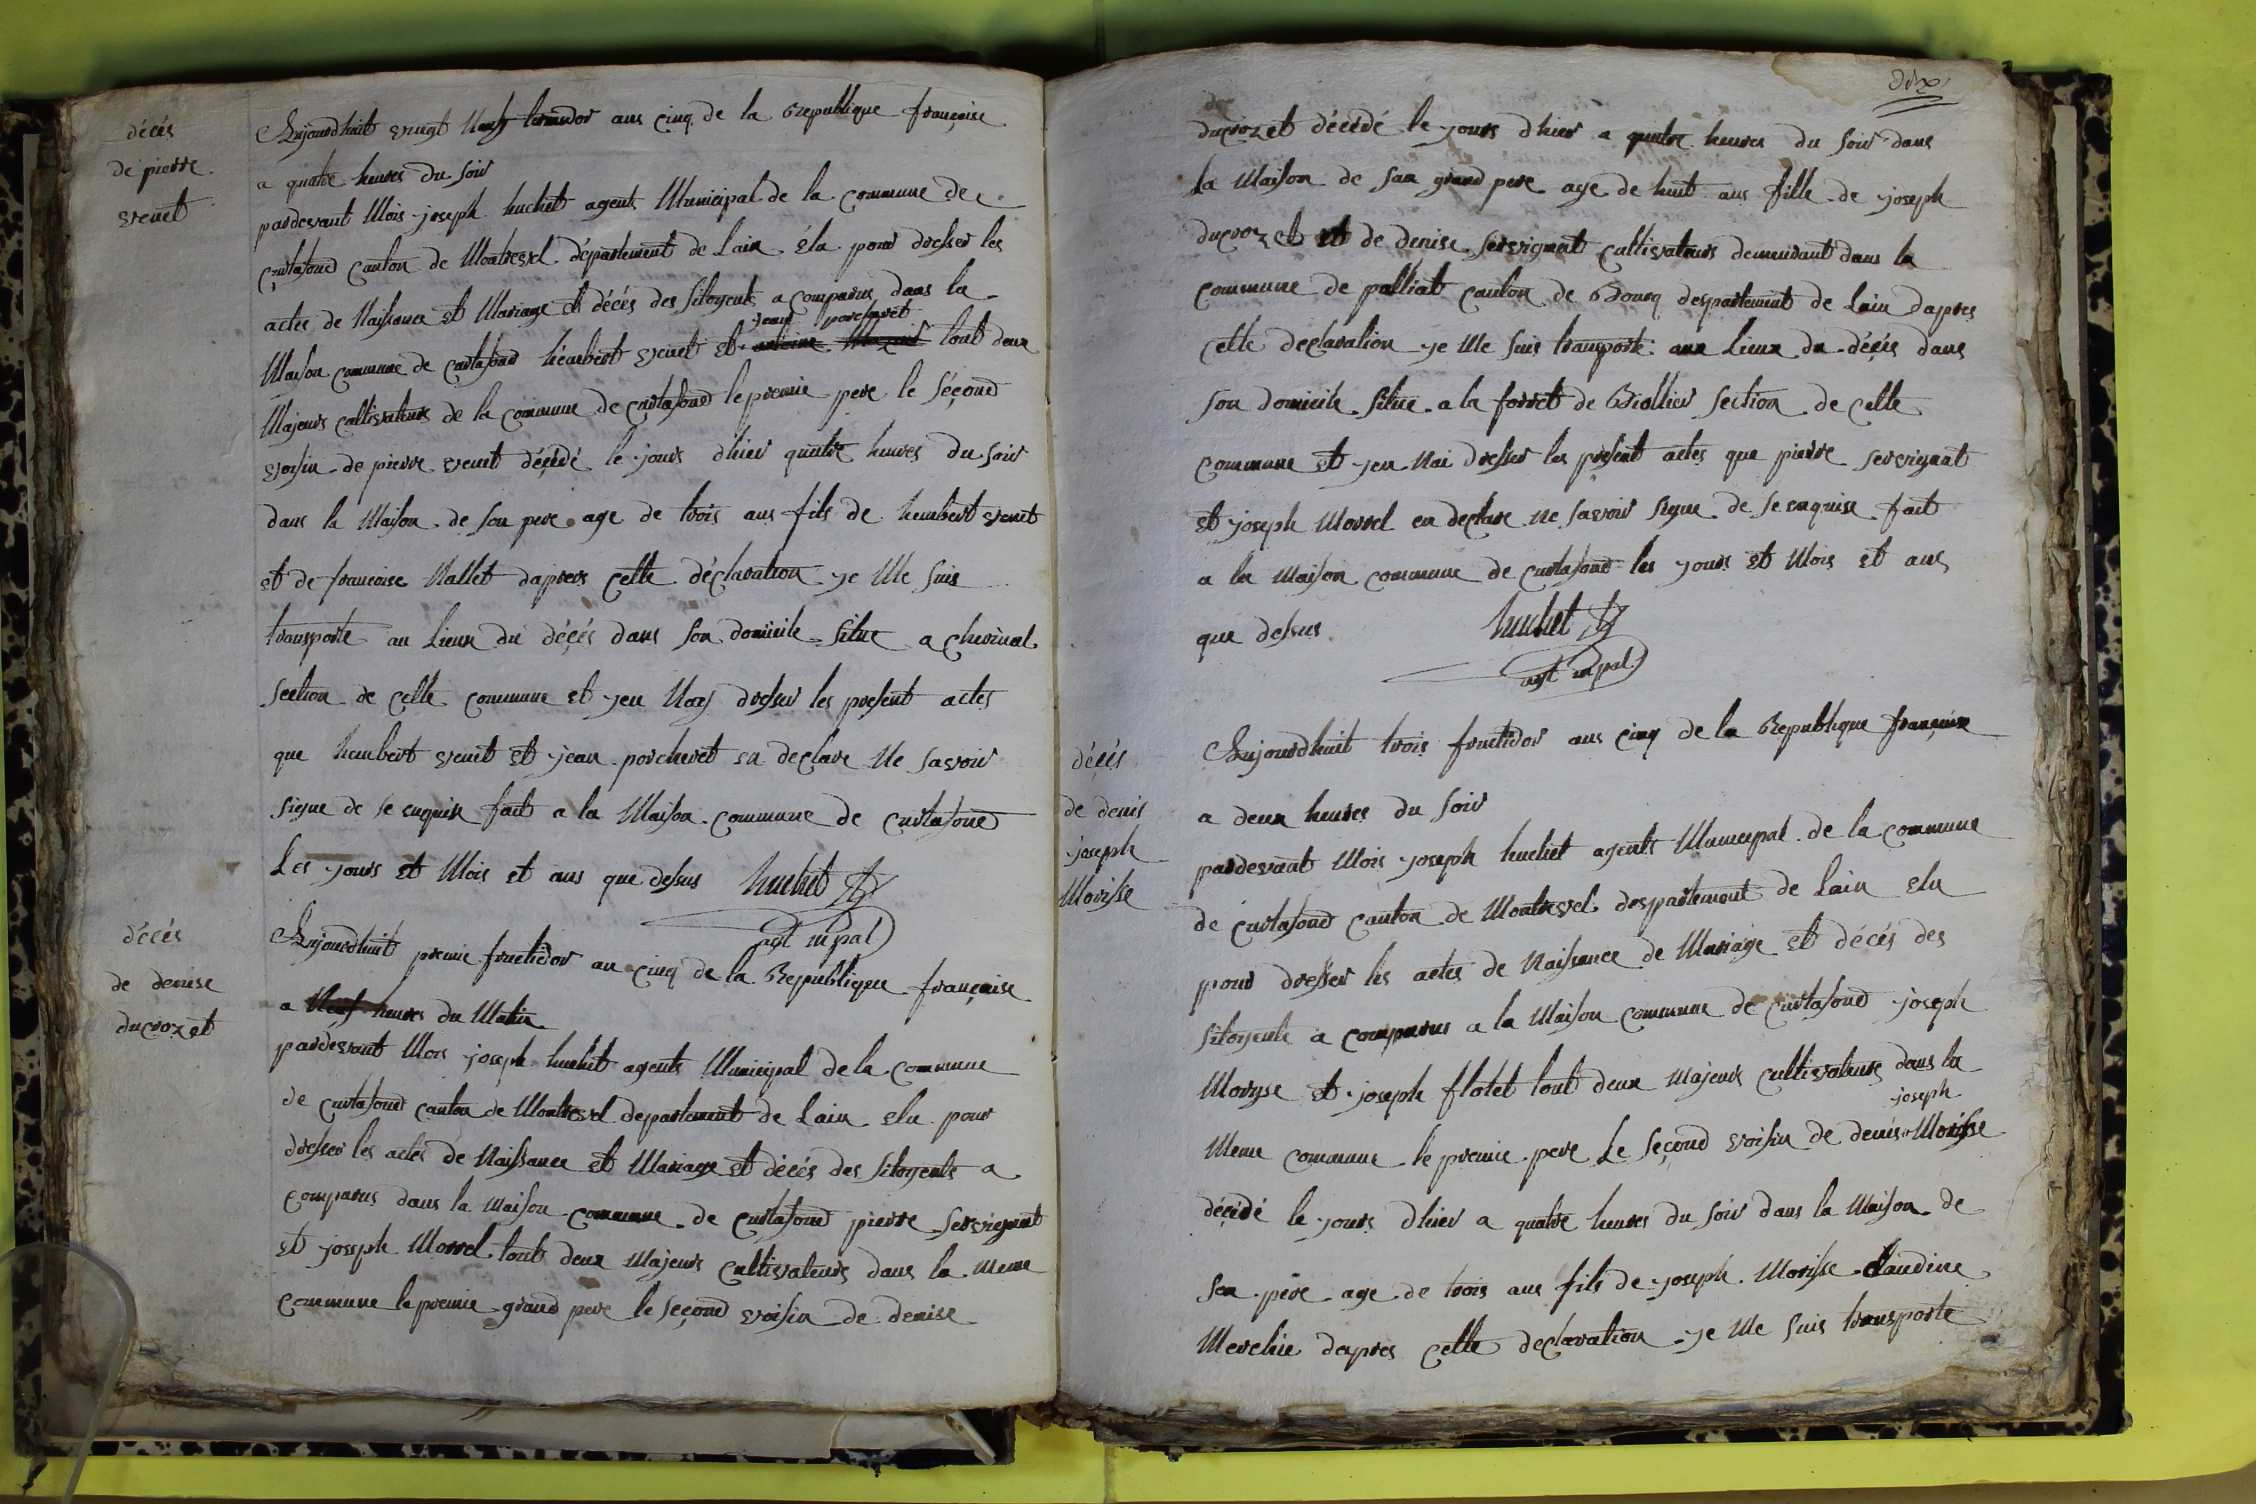 décés
de pierre
venet
Aujourdhuit vingt neuf termidor ans cinq de la Republique françoise
a quatre heures du soir
pardevant Mois joseph huchet agents Municipal de la commune de
curtafond canton de Montrevel département de Lain éla pour dresser les
actes de Naissance et Mariage et décés des sitoyents a comparus dans la
jean porcheret
Maison commune de curtafond heumbert venet et antoine Mazuir tout deux
Majeurs cultivateurs de la commune de curtafond le premie pere le second
voisin de pierre venet décédé le jours dhier quatre heures du soir
dans la Maison de son pere age de trois ans fils de humbert venet
et de francoise Nallet dapres cette déclaration je Me suis
transporte au Lieux du décés dans son domicile situe a chevinal
section de cette commune et jen Nay dresser les present actes
que humbert venet et jean porcheret en declare Ne savoir
signe de se enquise fait a la Maison commune de curtafond
Les jours et Mois et ans que desus huchet
agt mpal
décés
de denise
ducrozet
Aujourdhuit premie fructidor an cinq de la Republique françoise
a Neuf heures du Matin
pardevant Mois joseph huchet agents Municipal de la commune
de curtafond canton de Montrevel departement de Lain elu pour
dresser les actes de Naissance et Mariage et décés des sitoyents a
comparus dans la maison commune de curtafond pierre servignat
et joseph Morrel touts deux Majeurs cultivateurs dans la meme
commune le premie grand pere le second voisin de denise
dix
ducrozet décédé le jours dhier a quatre heures du soir dans
la Maison de san grand pere age de huit ans fille de joseph
ducrozet et de denise servignat cultivateurs demeurant dans la
commune de palliat canton de Bourq despartement de Lain dapres
cette declaration je Me suis transporte aux Lieux du décés dans
son domicile situe a la forret de Biollier section de cette
commune et jen Nai dresser les present actes que pierre servignat
et joseph Morrel en declare ne savoir signe de se enquise fait
a la Maison commune de curtafond les jours et Mois et ans
que desus huchet
agt mpal
décés
de denis
joseph
Morisse
Aujourdhuit trois fructidor ans cinq de la Republique françoise
a deux heures du soir
pardevant Mois joseph huchet agents Municipal de la commune
de curtafond canton de Montrevel despartement de Lain elu
pour dresser les actes de Naissance de Mariage et décés des
sitoyents a comparus a la Maison commune de curtafond joseph
Moryse et joseph flotet tout deux Majeurs cultivateurs dans la
joseph
Meme commune le premie pere Le second voisin de denis Morisse
décédé le jours dhier a quatre heures du soir dans la Maison de
son père age de trois ans fils de joseph Morisse claudine
Merchie dapres cette declaration je Me suis transporte